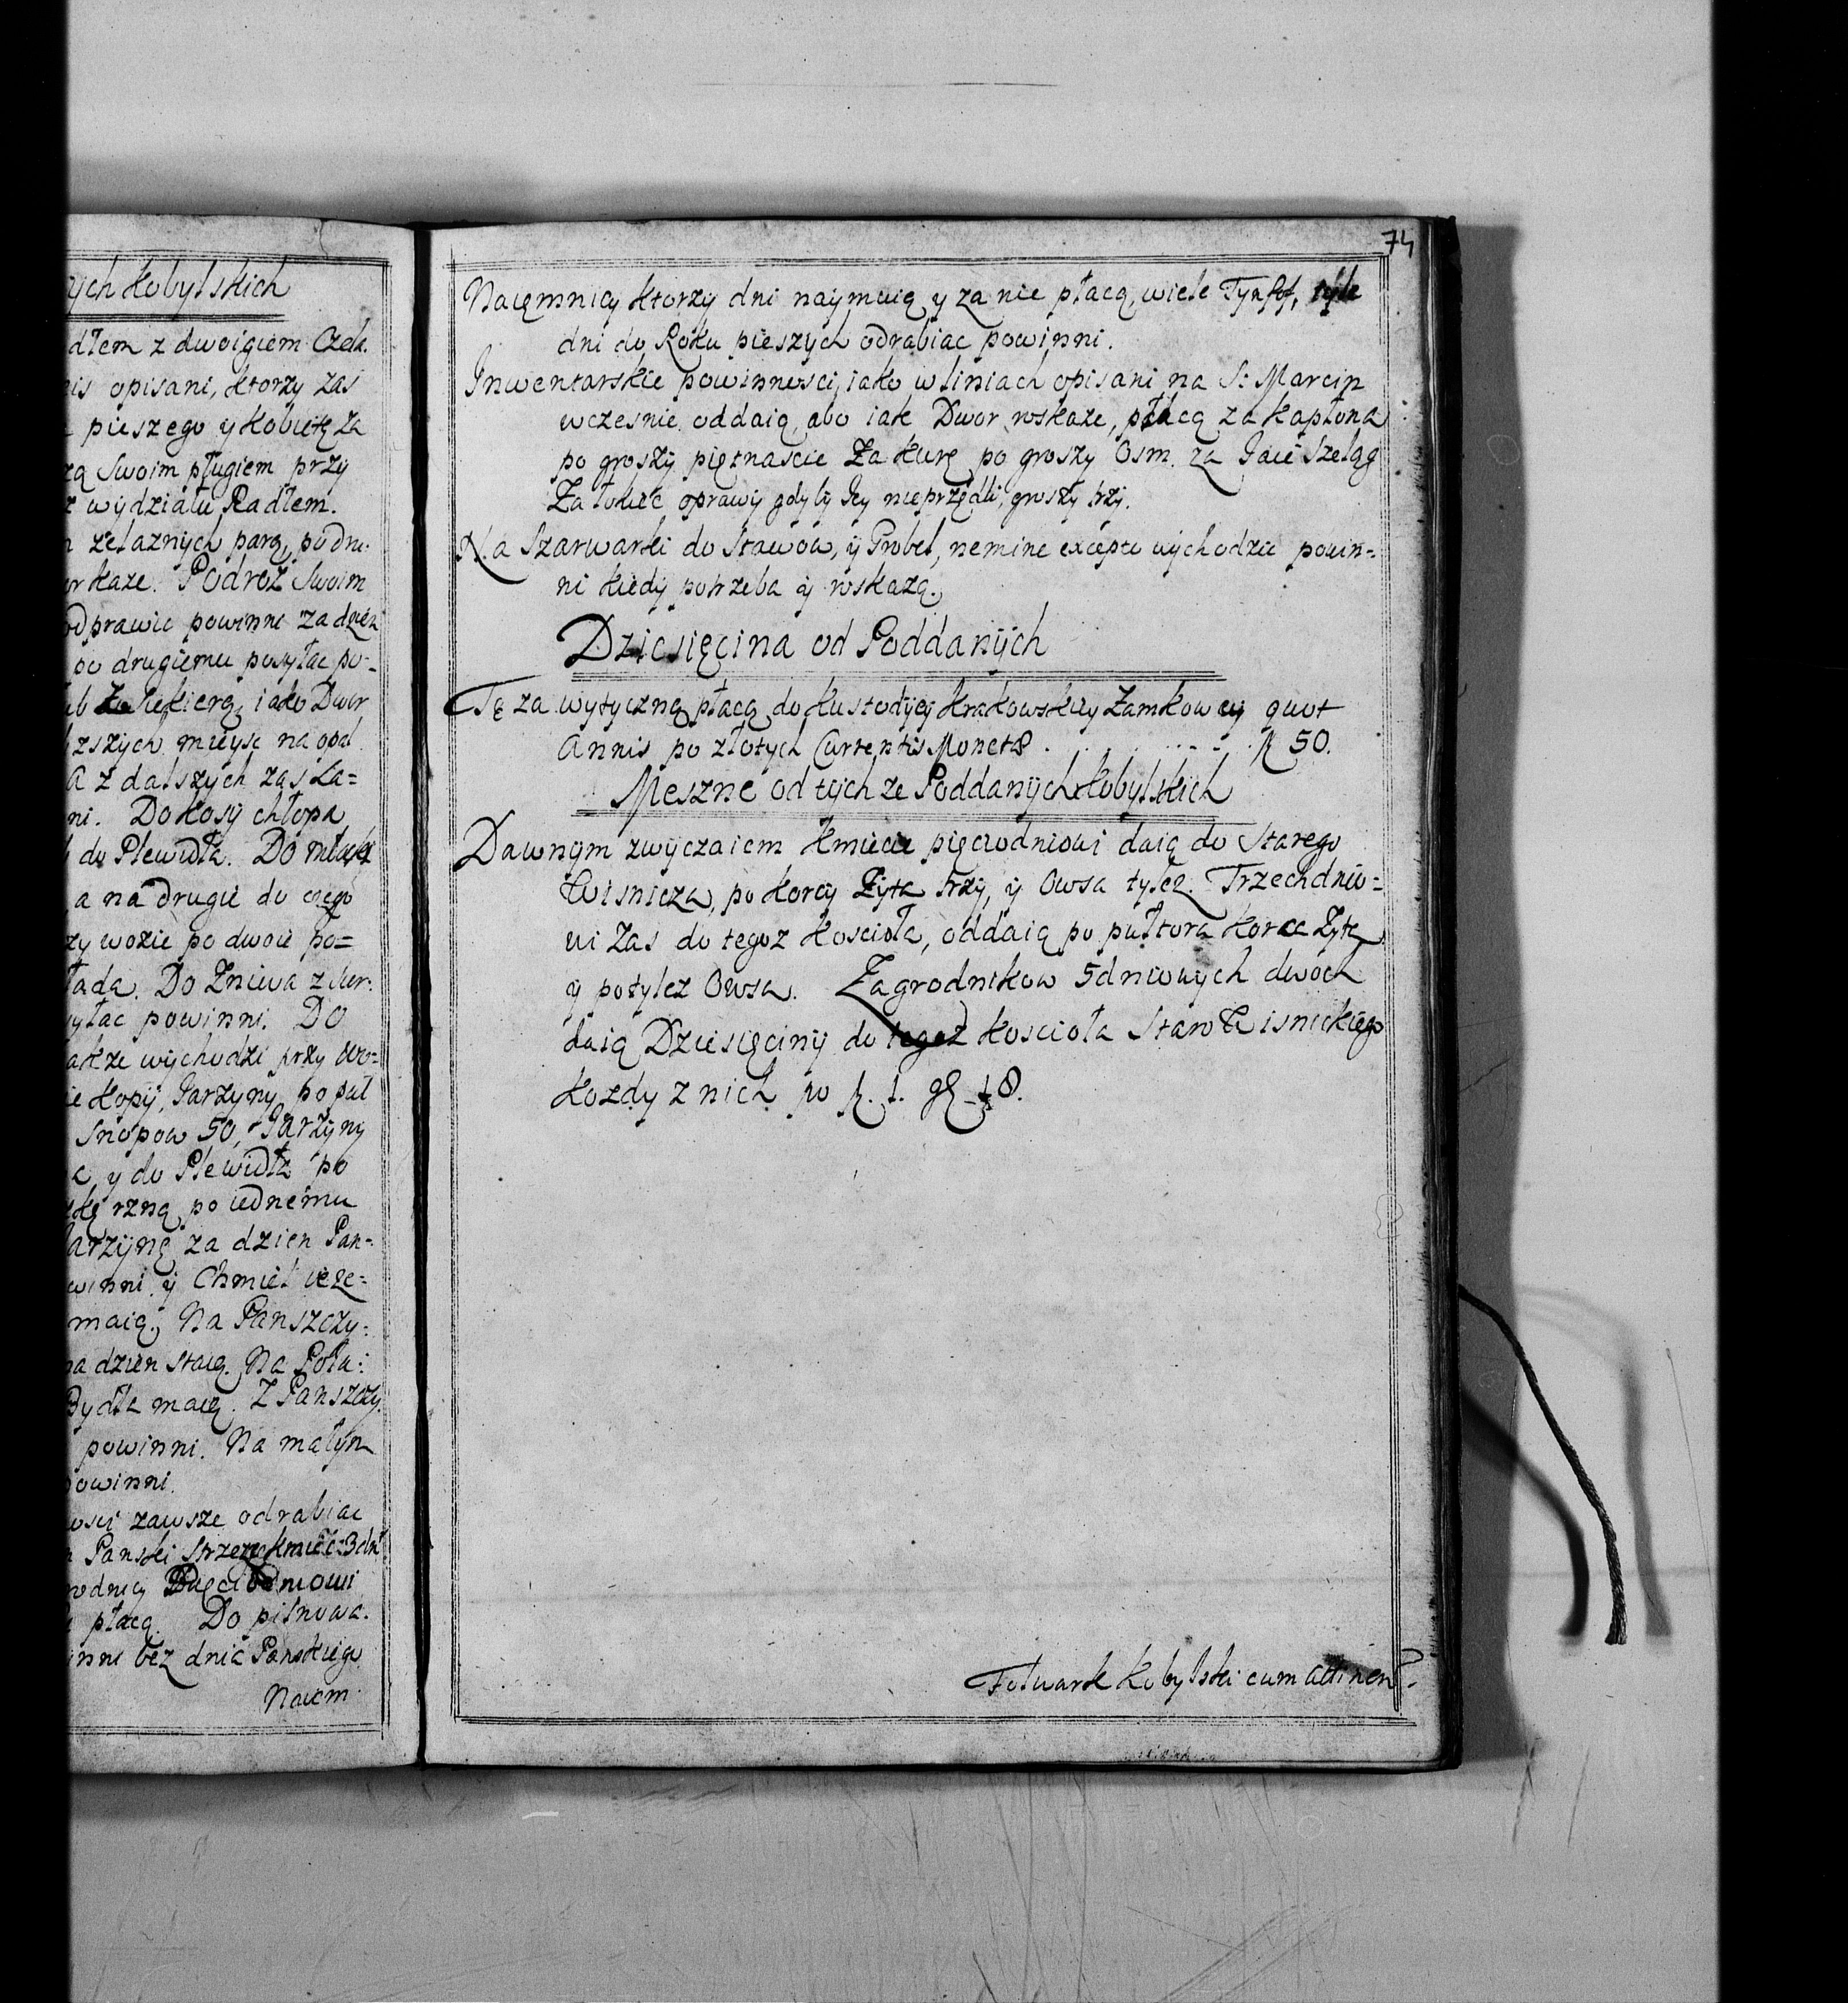 ych Kobylskich
dłem z dwoigiem Czela.
nis opisani, ktorzy zas
pieszego y kobietę za
zą Swoim pługiem przy
z wydziału Radłem.
zelaznych parą, podru-
or kaze. Podroz Swoim
odprawic powinni za dzien
po drugiemu posyłac po-
ub Za siekierą, iako Dwor
zszych mieysc na opał
A z dalszych zas La=
ni. Do kosy chłopa
do Plewidła. Do
a na drugie do czego
zy wozie po dwoie po=
łada. Do Zniwa z Sier:
yłac powinni. Do
akze wychodzi przy Wo=
ie kopy, Jarzyny po puł
Snopow 50, Jarzyny
y do Plewidła po
rzną po iednemu
Jarzynę za dzien Pan-
winni y Chmiel
maią. Na Panszczy:
na dzien staią. Na Połu:
Bydła maią. Z Panszczy.
powinni. Na małym
powinni.
osci zawsze odrabiac
Panski Kmiec 3dn
rodnicy Pięciodniowi
płacą. Do pilnowa.
inni bez dnia Panskiego
Naiem
74
Naięmnicy ktorzy dni naymuią y za nie płacą, wiele Tynfof, tyle
dni do Roku pieszych odrabiac powinni.
Inwentarskie powinnosci, iako w liniach opisani na S: Marcin
wczesnie oddaią, abo iak Dwor wskaze, płacą za kapłona
po groszy piętnascie Za kurę po groszy Osm. za Jaie Szeląg
Za łokiec oprawy gdyby Jey nieprzędli, groszy trzy.
Na Szarwarki do Stawow, y Grobel, nemine excepto wychodzic powin=
ni kiedy potrzeba y wskazą.
Dziesięcina od Poddanych
Tę za wytyczną płacą do Kustodyey Krakowskiey Zamkowey quot
Annis po złotych Currentis Monetæ . . . . . . . fl 50.
Meszne od tych ze Poddanych Kobylskich
Dawnym zwyczaiem Kmiecie pięciodniowi daią do Starego
Wisnicza, po korcy Zyta trzy, y Owsa tylez. Trzechdnio=
wi Zas do tegoz Kosciola, oddaią po pułtora korca Zyta
y potylez Owsa. Zagrodnikow 5dniowych dwoch
daią Dziesięciny do tegoz Kosciola StaroWisnickiego
Kozdy z nich po fl. 1. gr 18.
Folwark Kobylski cum Attinen: